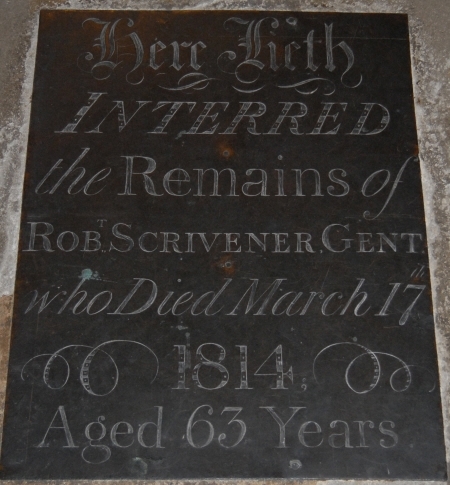 Here Lieth
INTERRED
the Remains of
ROBT. SCRIVENER, GENT
who Died March 17th
1814,
Aged 63 Years